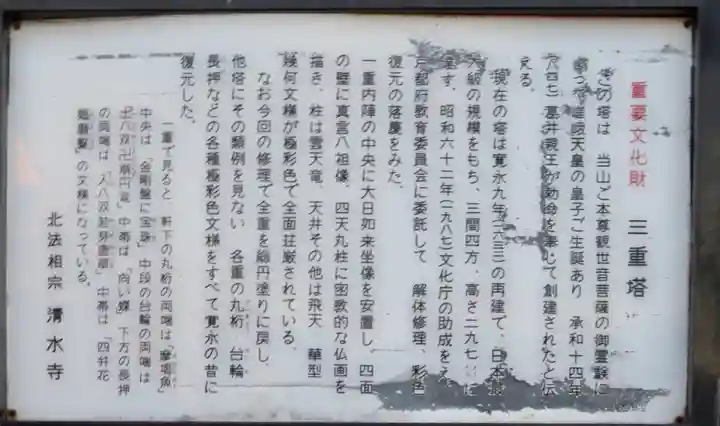 重要文化財 三重塔
この塔は 当山ご本尊観世音菩薩の御霊験に
天皇の皇子ご生誕あり 承和十四年
葛井親王が勅命を奉じて創建されたと伝
える。
現在の塔は寛永九年(一六三二)の再建で、日本最
大級の規模をもち、三間四方、高さ二九七
ます。昭和六十二年(一九八七)文化庁の助成をえ、
京都府教育委員会に委託して 解体修理、彩色
復元の落慶をみた。
一重内陣の中央に大日如来坐像を安置し、四面
の壁に真言八祖像、四天丸柱に密教的な仏画を
描き、柱は雲天竜、天井その他は飛天 華型
幾何文様が極彩色で全面荘厳されている。
なお今回の修理で全重を総丹塗りに戻し、
他塔にその類例を見ない 各重の丸桁 台輪
長押などの各種極彩色文様をすべて寛永の昔に
復元した。
一重で見ると 軒下の丸桁の両端は「摩竭魚」
中央は「金剛盤に宝珠」中段の台輪の両端は
「出八双卍崩円竜」中帯は「向い蝶」下方の長押
の両端は「入八双」中帯は「四弁花
」の文様になっている。
北法相宗 清水寺